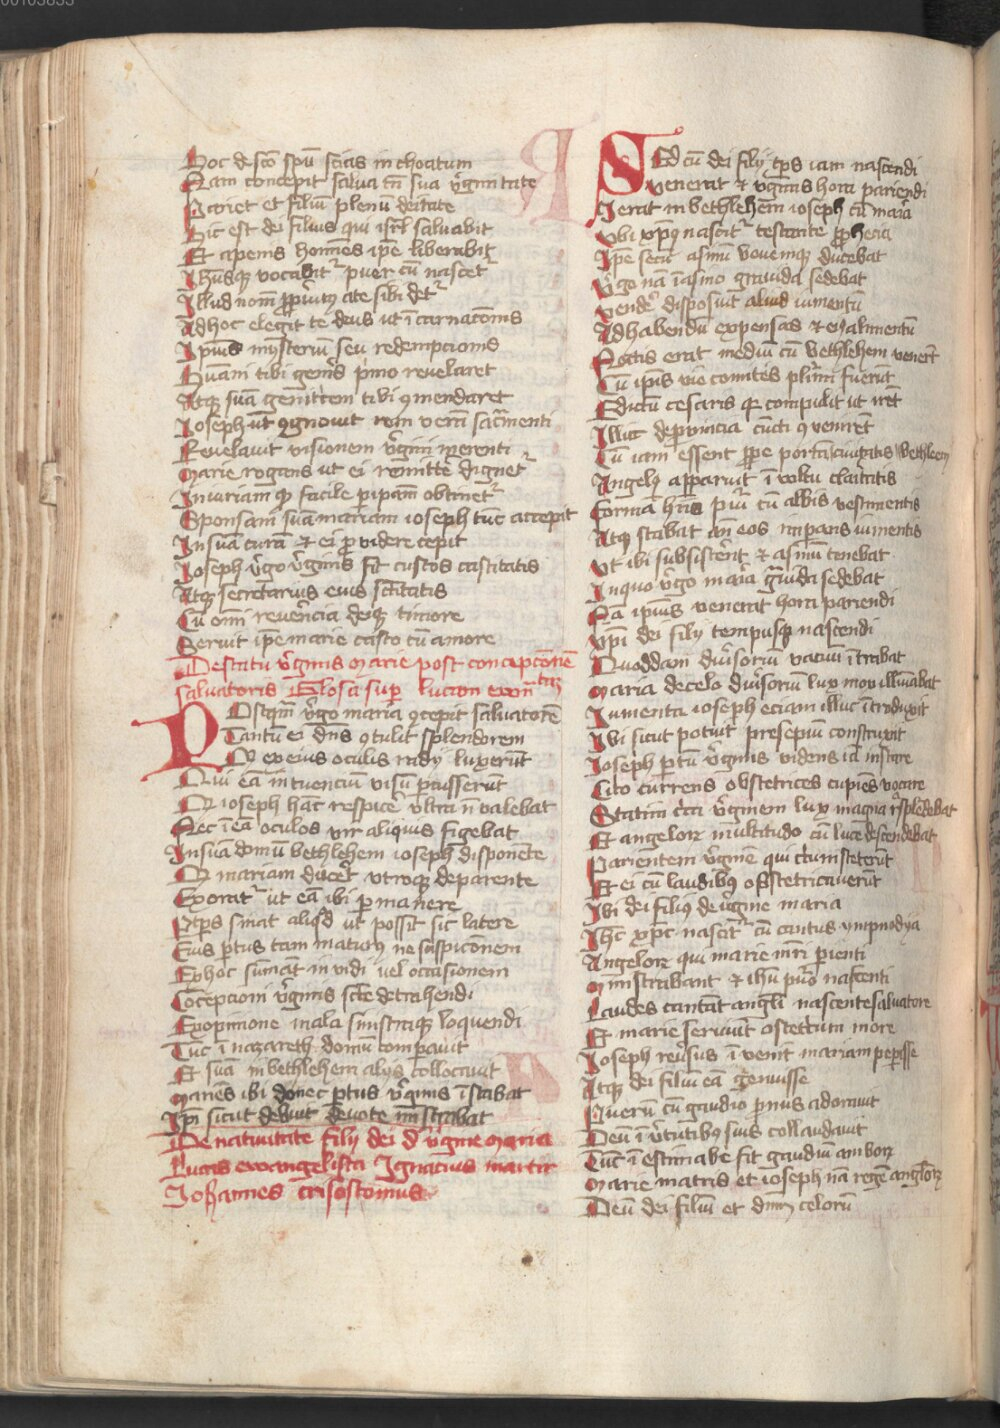 00103853
Hoc de scō spū sc̄ias inchoatum
Nam concepit salua tn̄ sua v̓ginitate
Pariet et filiū plenū deitate
Hic est dei filius qui isrl̄ saluabit
Et a penis homīes ip̄e liberabit
Ihūsqꝫ vocabit᷑ puer cū nascet᷑
Illud nom̄ ꝓpriū a te sibi det᷑
Ad hoc elegit te deus ut īcarnacionis
Ipius misteriū seu redempcionis
Huāni tibi gen̄is p̄mo reuelaret
Atqꝫ suā genit̄cem tibi ꝯmendaret
Ioseph ut ꝯgnouit rem verā sacr̄menti
Reuelauit visionem v̓gini merenti
Marie rogans ut ei remitt̄e dignet᷑
Iniuriam qꝫ facile p ip̄am obtinet᷑
Sponsam suā mariam ioseph tūc accepit
In suā curā ⁊ ei ꝓuidere cepit
Ioseph v̓go v̓ginis fit custos castitatis
Atqꝫ secretarius eius sc̄titatis
Cū om̄i reuēncia deiqꝫ timore
Seruit ip̄e marie casto cū amore
De statu v̓ginis Marie post concepcōnē
saluatoris Glosa sup̱ lucam
Postqm̄ v̓go maria ꝯcepit saluatorē
Tantū ei dn̄s ꝯtulit splendorem
Qꝫ ex eius oculis radij luxerūt
Qui eā intuenciū visū
Qꝫ ioseph hāc respice᷑ vltra n̄ valebat
Nec ī eā oculos vir aliquis figebat
In suā domū bethlehem ioseph disponente
Qꝫ mariam duce᷑t vtroqꝫ de parente
Exorat᷑ ut eā ibi p̱manere
P tp̄s sinat aliqd̓ ut possit sic latere
Eius p̱tus tam maturꝰ ne suspicionem
Ex hoc sumāt inuidi uel occasionem
Cōcepcioni v̓ginis sc̄te detrahendi
Ex opinione mala sinistraqꝫ loquendi
Tūc ī nazareth domū comp̱auit
Et suā in bethlehem alijs collocauit
Manēs ibi donec p̱tus v̓ginis īstabat
Ip̄i sicut debuit deuote mīstrabat
De natiuitate filij dei d̓ v̓gine maria
Lucas ewangelista Ignacius martir
Iohannes crisostomus
Sed cū dei filij tp̄s iam nascendi
venerat ⁊ v̓ginis hora pariendi
Ierat in bethlehem ioseph cū maria
Vbi xp̄ꝰ nascit᷑ testante ꝓphecia
Ip̄e secū asinū bouemqꝫ ducebat
V̓go nā ī asino grauida sedebat
Vende᷑ disposuit aliud iumentū
Ad habendū expensas ⁊ eī alimentū
Noctis erat mediū cū bethlehem venert̄
Cū ip̄is vie comites plīmi fuerūt
Edictū cesaris qꝫ compulit ut irēt
Illuc de prouincia cūcti ꝯuenirēt
Cū iam essent ꝓpe portā ciuitatis bethleem
Angelꝰ apparuit ī vultu claritatis
Forma hn̄s pu᷑i cū albis vestimentis
Atqꝫ stabat an̄ eos
Vt ibi subsisterēt ⁊ asinū tenebat
In quo v̓go maria g̓uida sedebat
Nā ipius venerat hora pariendi
Xp̄i dei filij tempusqꝫ nascendi
Quoddam diu᷑soriū vacuū ītrabat
Maria de celo diu᷑soriū lux mox illūiabat
Iumenta ioseph eciam illuc ītroduxit
Ibi sicut potuit presepiū construxit
Ioseph p̱tū v̓ginis videns iā instare
Cito currens obstetrices cupiens vocare
Statim c̄ca v̓ginem lux magna r̄splēdebat
Et angeloꝝ multitudo cū luce descendebat
Parientem v̓ginē qui circumsteterūt
Et ei cū laudibꝰ obstetricauerūt
Ibi dei filiꝰ de v̓gine maria
Ihc̄ xpc̄ nascit᷑ cū cantus ympnodya
Angeloꝝ qui marie mr̄i p̱ienti
Ministrabant ⁊ ihū pu᷑o nascenti
Laudes cantāt angl̄i nascente saluatore
Et marie seruiūt obstetricum more
Ioseph reu᷑sus īvenit mariam pep̱isse
Atqꝫ dei filiū eā genuisse
Puerū cū gaudio p̱nus adorauit
Deū ī v̓tutibꝰ suis collaudauit
Tūc īestimabile fit gaudiū amboꝝ
Marie matris et ioseph nā regē angl̄oꝝ
Deū dei filiū et dn̄m celorū